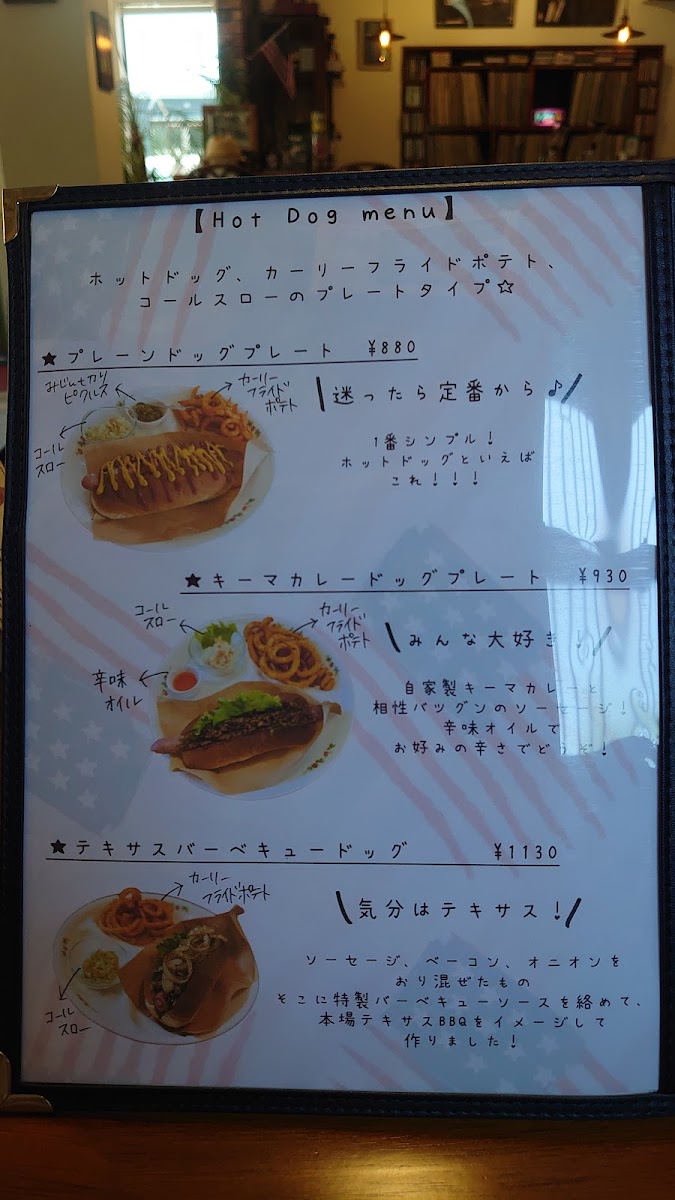 【Hot Dog menu】
ホットドッグ、カーリーフライドポテト、
コールスローのプレートタイプ☆
★プレーンドッグプレート ¥880
みじん切り
ピクルス
カーリー
フライド
ポテト
コール
スロー
迷ったら定番から♪
1番シンプル!
ホットドッグといえば
これ!!!
★キーマカレードッグプレート ¥930
コール
スロー
カーリー
フライド
ポテト
辛味
オイル
みんな大好き!
自家製キーマカレーと
相性バツグンのソーセージ!
辛味オイルで
お好みの辛さでどうぞ!
★テキサスバーベキュードッグ ¥1130
カーリー
フライドポテト
コール
スロー
気分はテキサス!
ソーセージ、ベーコン、オニオンを
おり混ぜたもの
そこに特製バーベキューソースを絡めて、
本場テキサスBBQをイメージして
作りました!